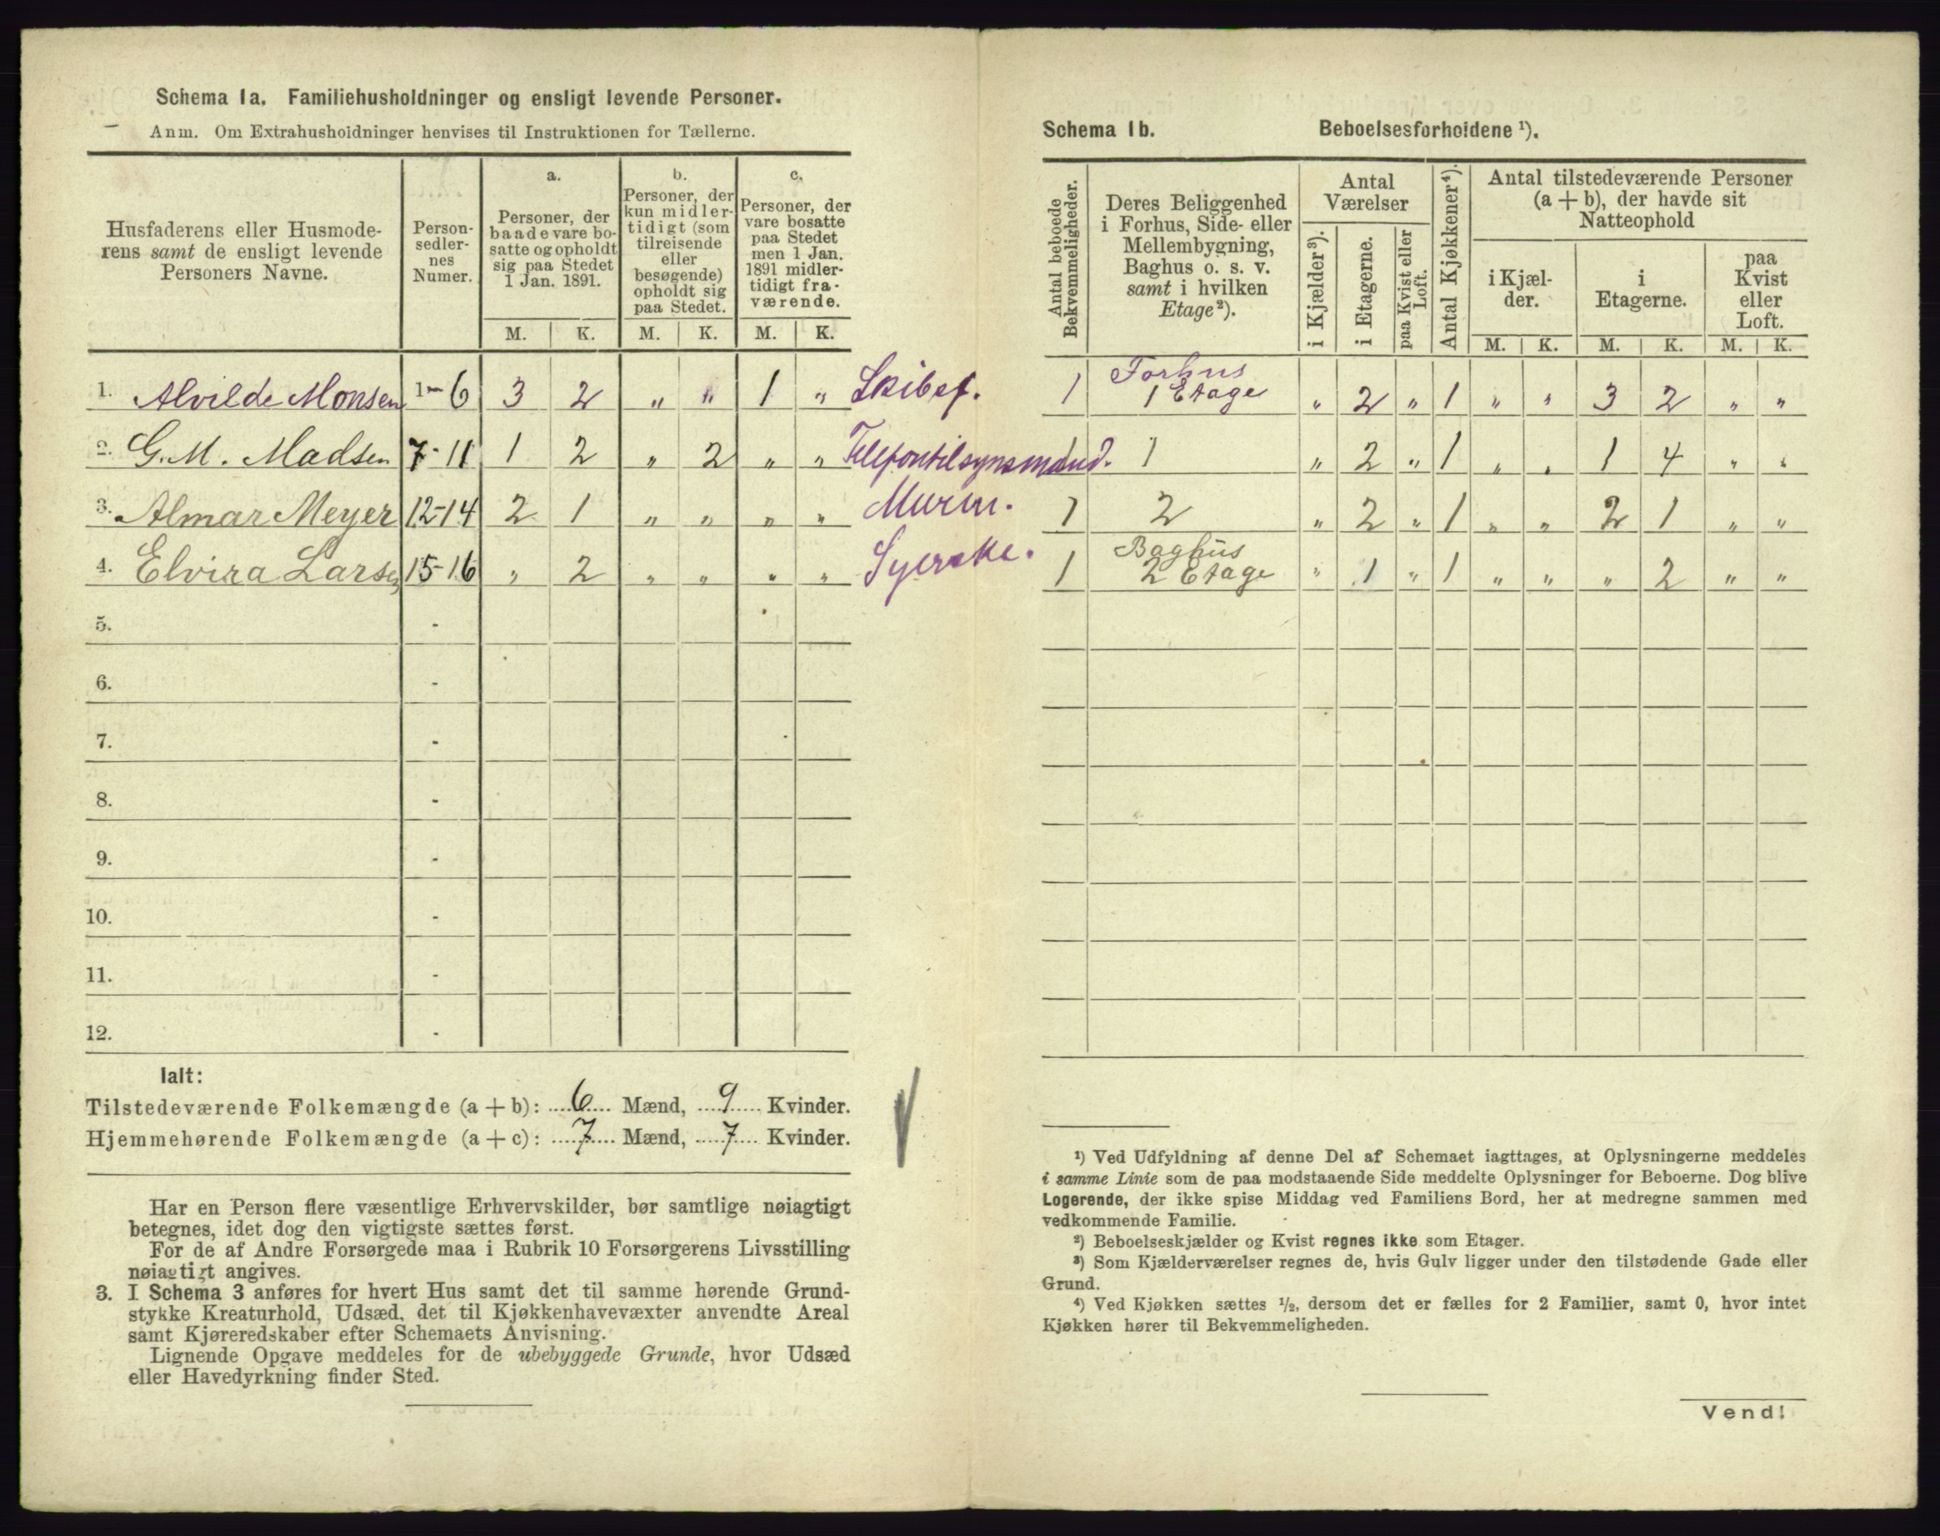 Schema 1a. Familiehusholdninger og ensligt levende Personer.
Anm. Om Extrahusholdninger henvises til Instruktionen for Tællerne.
Husfaderens eller Husmoderens samt de ensligt levende Personers Navne. | Personsedlernes Numer. | a. Personer, der baade vare bosatte og opholdt sig paa Stedet 1 Jan. 1891. | b. Personer, der kun midlertidigt (som tilreisende eller besøgende) opholdt sig paa Stedet. | c. Personer, der vare bosatte paa Stedet men 1 Jan. 1891 midlertidigt fraværende.
M. K. M. K. M. K.
1. Alvilde Monsen 1-6 3 2 „ „ 1 „ Skibsf.
2. G. M. Madsen 7-11 1 2 „ 2 „ „ Telefontilsynsmand.
3. Almar Meyer 12-14 2 1 „ „ „ „ Murm.
4. Elvira Larsen 15-16 „ 2 „ „ „ „ Syerske.
5. -
6. -
7. -
8. -
9. -
10. -
11. -
12. -
Ialt:
Tilstedeværende Folkemængde (a + b): 6 Mænd, 9 Kvinder.
Hjemmehørende Folkemængde (a + c): 7 Mænd, 7 Kvinder.
Har en Person flere væsentlige Erhvervskilder, bør samtlige nøiagtigt
betegnes, idet dog den vigtigste sættes først.
For de af Andre Forsørgede maa i Rubrik 10 Forsørgerens Livsstilling
nøiagtigt angives.
3. I Schema 3 anføres for hvert Hus samt det til samme hørende Grund-
stykke Kreaturhold, Udsæd, det til Kjøkkenhavevæxter anvendte Areal
samt Kjøreredskaber efter Schemaets Anvisning.
Lignende Opgave meddeles for de ubebyggede Grunde, hvor Udsæd
eller Havedyrkning finder Sted.
Schema 1b. Beboelsesforholdene ¹).
Antal beboede Bekvemmeligheder. | Deres Beliggenhed i Forhus, Side- eller Mellembygning, Baghus o. s. v. samt i hvilken Etage²). | Antal Værelser | i Kjælder³). | i Etagerne. | paa Kvist eller Loft. | Antal Kjøkkener⁴). | Antal tilstedeværende Personer (a + b), der havde sit Natteophold | i Kjælder. | i Etagerne. | paa Kvist eller Loft.
M. K. M. K. M. K.
1 Forhus 1 Etage „ 2 „ 1 „ „ 3 2 „ „
1 1 „ 2 „ 1 „ „ 1 4 „ „
1 2 „ 2 „ 1 „ „ 2 1 „ „
1 Baghus 2 Etage „ 1 „ 1 „ „ „ 2 „ „
¹) Ved Udfyldning af denne Del af Schemaet iagttages, at Oplysningerne meddeles
i samme Linie som de paa modstaaende Side meddelte Oplysninger for Beboerne. Dog blive
Logerende, der ikke spise Middag ved Familiens Bord, her at medregne sammen med
vedkommende Familie.
²) Beboelseskjælder og Kvist regnes ikke som Etager.
³) Som Kjælderværelser regnes de, hvis Gulv ligger under den tilstødende Gade eller
Grund.
⁴) Ved Kjøkken sættes 1/2, dersom det er fælles for 2 Familier, samt 0, hvor intet
Kjøkken hører til Bekvemmeligheden.
Vend!